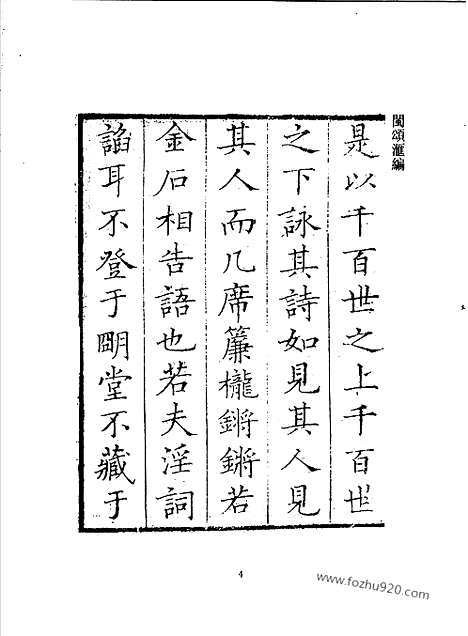 閩頌滙編
是以千百世之上千百世
之下詠其詩如見其人見
其人而几席簾櫳鏘鏘若
金石相告語也若夫淫詞
諂耳不登于朙堂不藏于
4
www.fozhu920.com